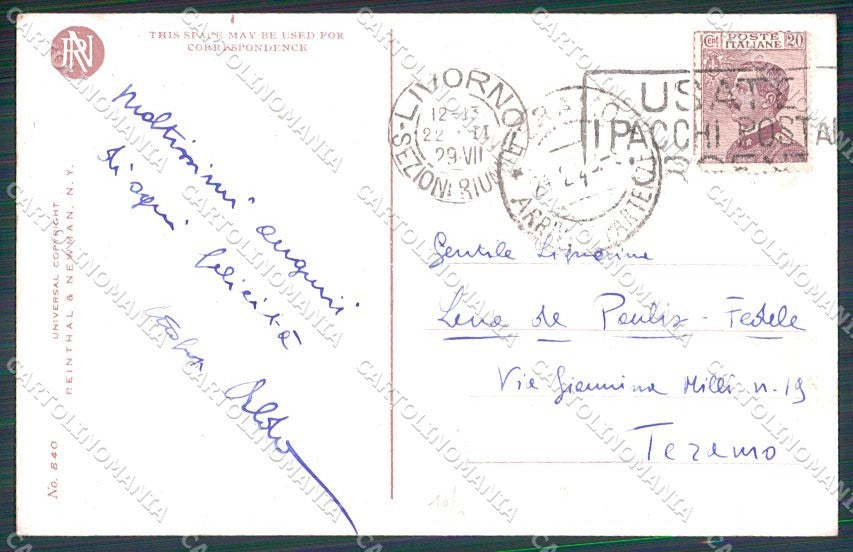 THIS SPACE MAY BE USED FOR
CORRESPONDENCE
RN
Moltissimi auguri
di ogni felicità
Aldo
UNIVERSAL COPYRIGHT
REINTHAL & NEWMAN, N. Y.
No. 840
LIVORNO
12-13
22 II
29·VII
SEZIONI RIUNITE
ARRIVI PARTENZE
USATE
I PACCHI POSTA
Cent POSTE 20
ITALIANE
Gentile Signorina
Lena de Paulis - Fedele
Via Giannina Milli n. 19
Teramo
CARTOLINOMANIA